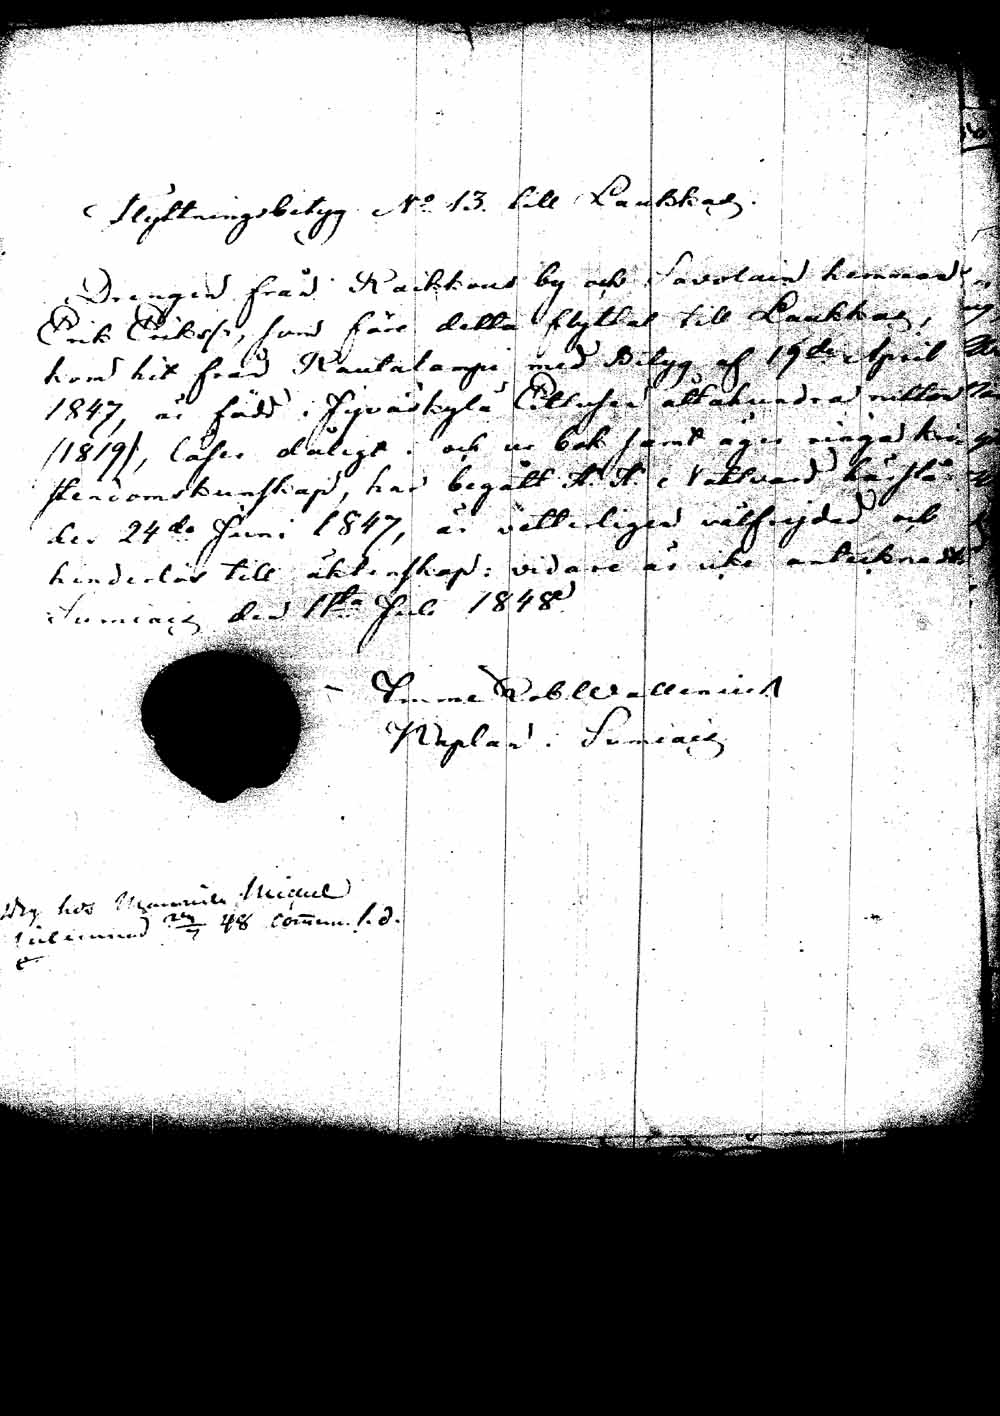 Flyttningsbetyg No 13. till Laukkas.
Drengen från Kaikkous by och Savolain hemman
Erik Erikss, som före detta flyttat till Laukkas,
kom hit från Rautalampi med Betyg af 19de April
1847, är född i Jyväskylä Ettusen åttahundra nitton
/1819/, läser dåligt i och ur bok samt äger ringa kri-
stendomskunskap, har begått H. H. Nattvard härstä-
des 24de Juni 1847, är vetterligen välfrejdad och
hinderlös till äktenskap: vidare är icke antecknadt.
Sumiais den 11te Juli 1848
Rob Wallenius
Kaplan i Sumiais
hos Miquel
48 comm. s. d.